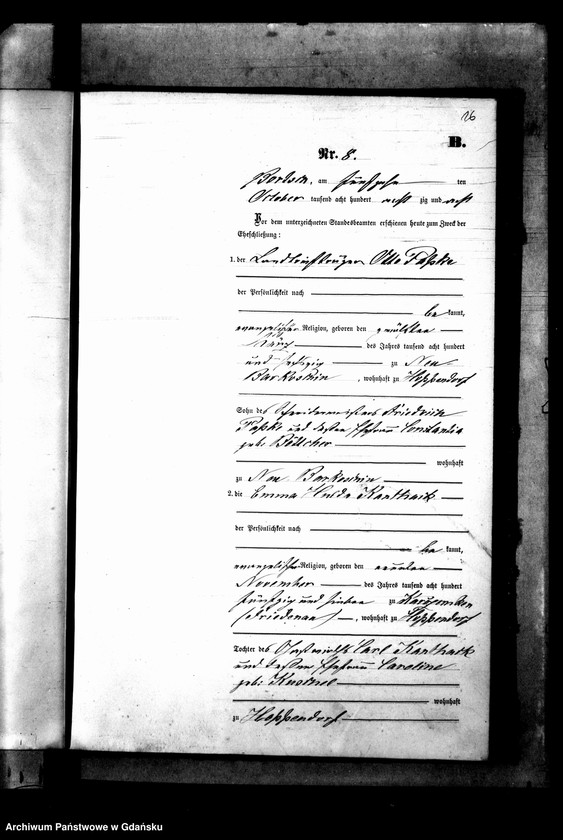 26
B.
Nr. 8.
am fünfzehn ten
October tausend acht hundert acht zig und acht
Vor dem unterzeichneten Standesbeamten erschienen heute zum Zweck der
Eheschließung:
1. der Otto Papke
der Persönlichkeit nach
be kannt,
evangelischer Religion, geboren den zwölften
März des Jahres tausend acht hundert
und zu Neu
Barkoschin, wohnhaft zu Hoppendorf
Sohn des Schneidermeisters Friedrich
Papke und dessen Ehefrau Constantia
geb. Böttcher
wohnhaft
zu Neu Barkoschin
2. die Emma Hulda Kanthack
der Persönlichkeit nach
be kannt,
evangelischer Religion, geboren den neunten
November des Jahres tausend acht hundert
fünfzig und sieben zu
(Friedenau), wohnhaft zu Hoppendorf
Tochter des Gastwirths Carl Kanthack
und dessen Ehefrau Caroline
geb.
wohnhaft
zu Hoppendorf
Archiwum Państwowe w Gdańsku